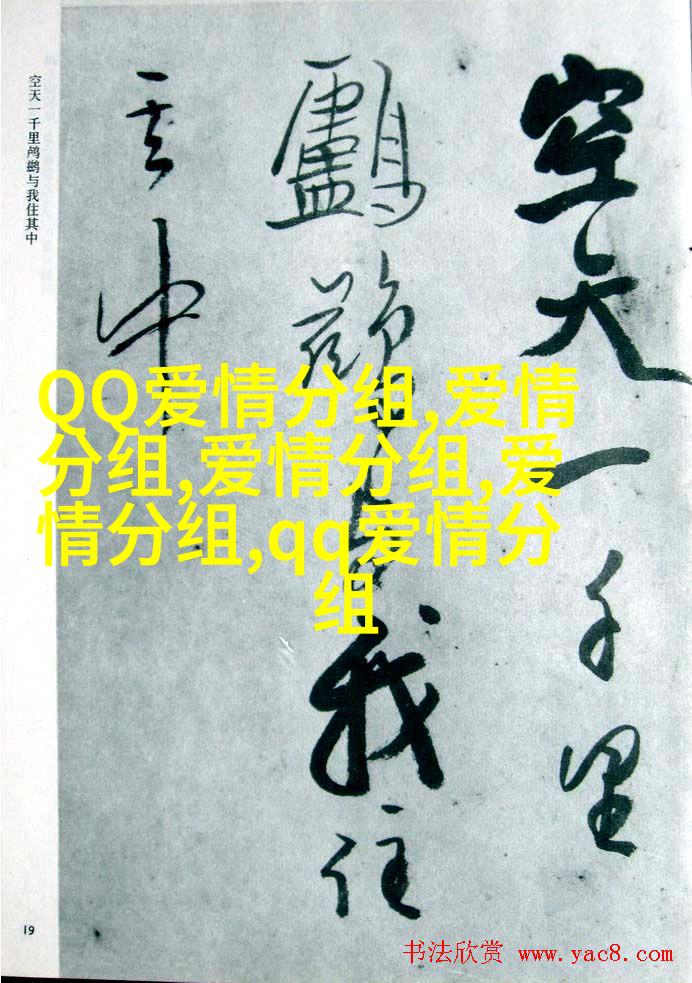 空天一千里
鸕鷀与我住
其中
空天一千里鸬鹚与我住其中
QQ爱情分组,爱情
分组,爱情分组,爱
情分组,qq爱情分
组
19
书法欣赏 www.yac8.com